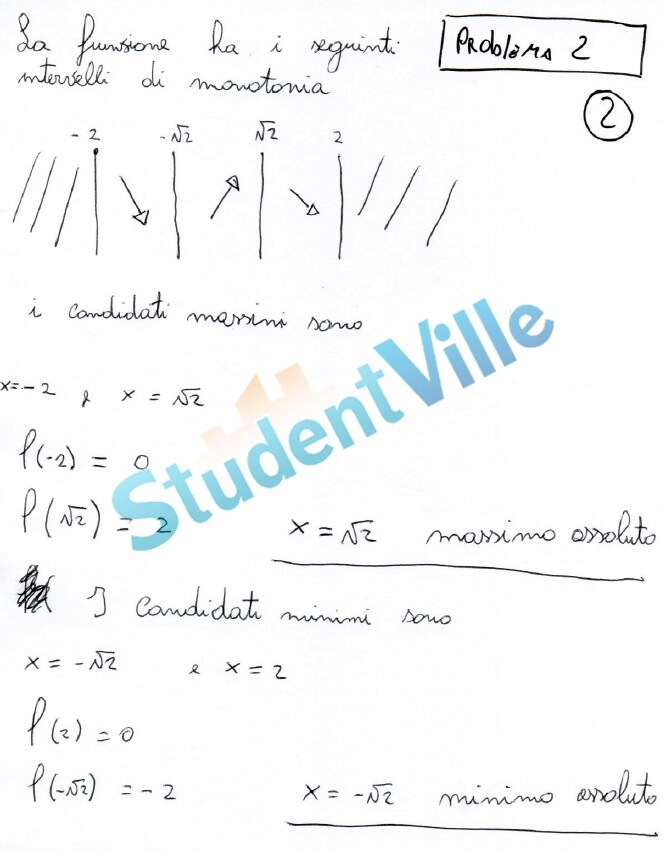 La funzione ha i seguenti
intervelli di monotonia
Problema 2
2
-2 -√2 √2 2
i candidati massimi sono
x=-2 e x = √2
f(-2) = 0
f(√2) = 2
x = √2 massimo assoluto
I candidati minimi sono
x = -√2 e x = 2
f(2) = 0
f(-√2) = -2
x = -√2 minimo assoluto
StudentVille